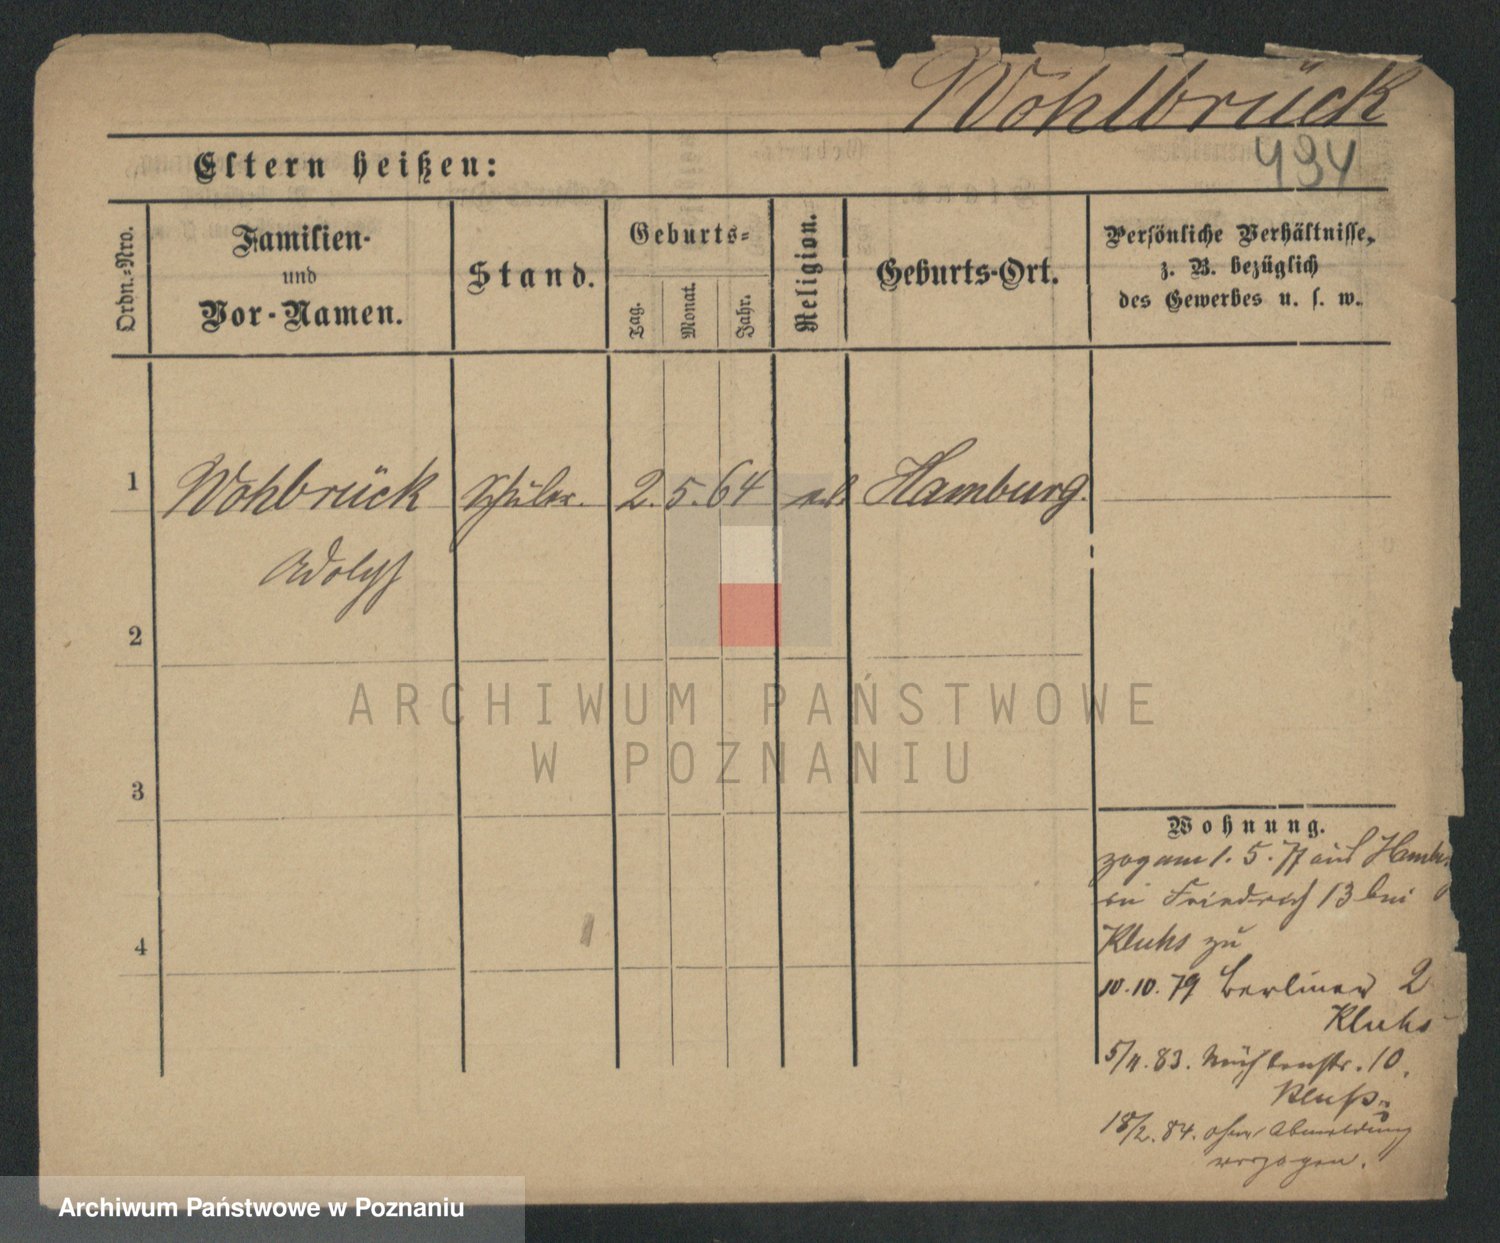 Wohlbrück
494
Eltern heißen:
Ordn.-Nro.
Familien-
und
Vor-Namen.
Stand.
Geburts-
Tag.
Monat.
Jahr.
Religion.
Geburts-Ort.
Persönliche Verhältnisse,
z. B. bezüglich
des Gewerbes u. s. w.
1 Wohbrück Schüler. 2. 5. 64 Hamburg.
Adolph
2
3
4
Wohnung.
zog am 1. 5. 77 aus Hambg
in Friedrich 13 bei
Kluhs zu
10. 10. 79 Berliner 2
Kluhs
5/11. 83. Mühlenstr. 10.
18/2. 84. ohne Abmeldung
verzogen.
ARCHIWUM PAŃSTWOWE
W POZNANIU
Archiwum Państwowe w Poznaniu